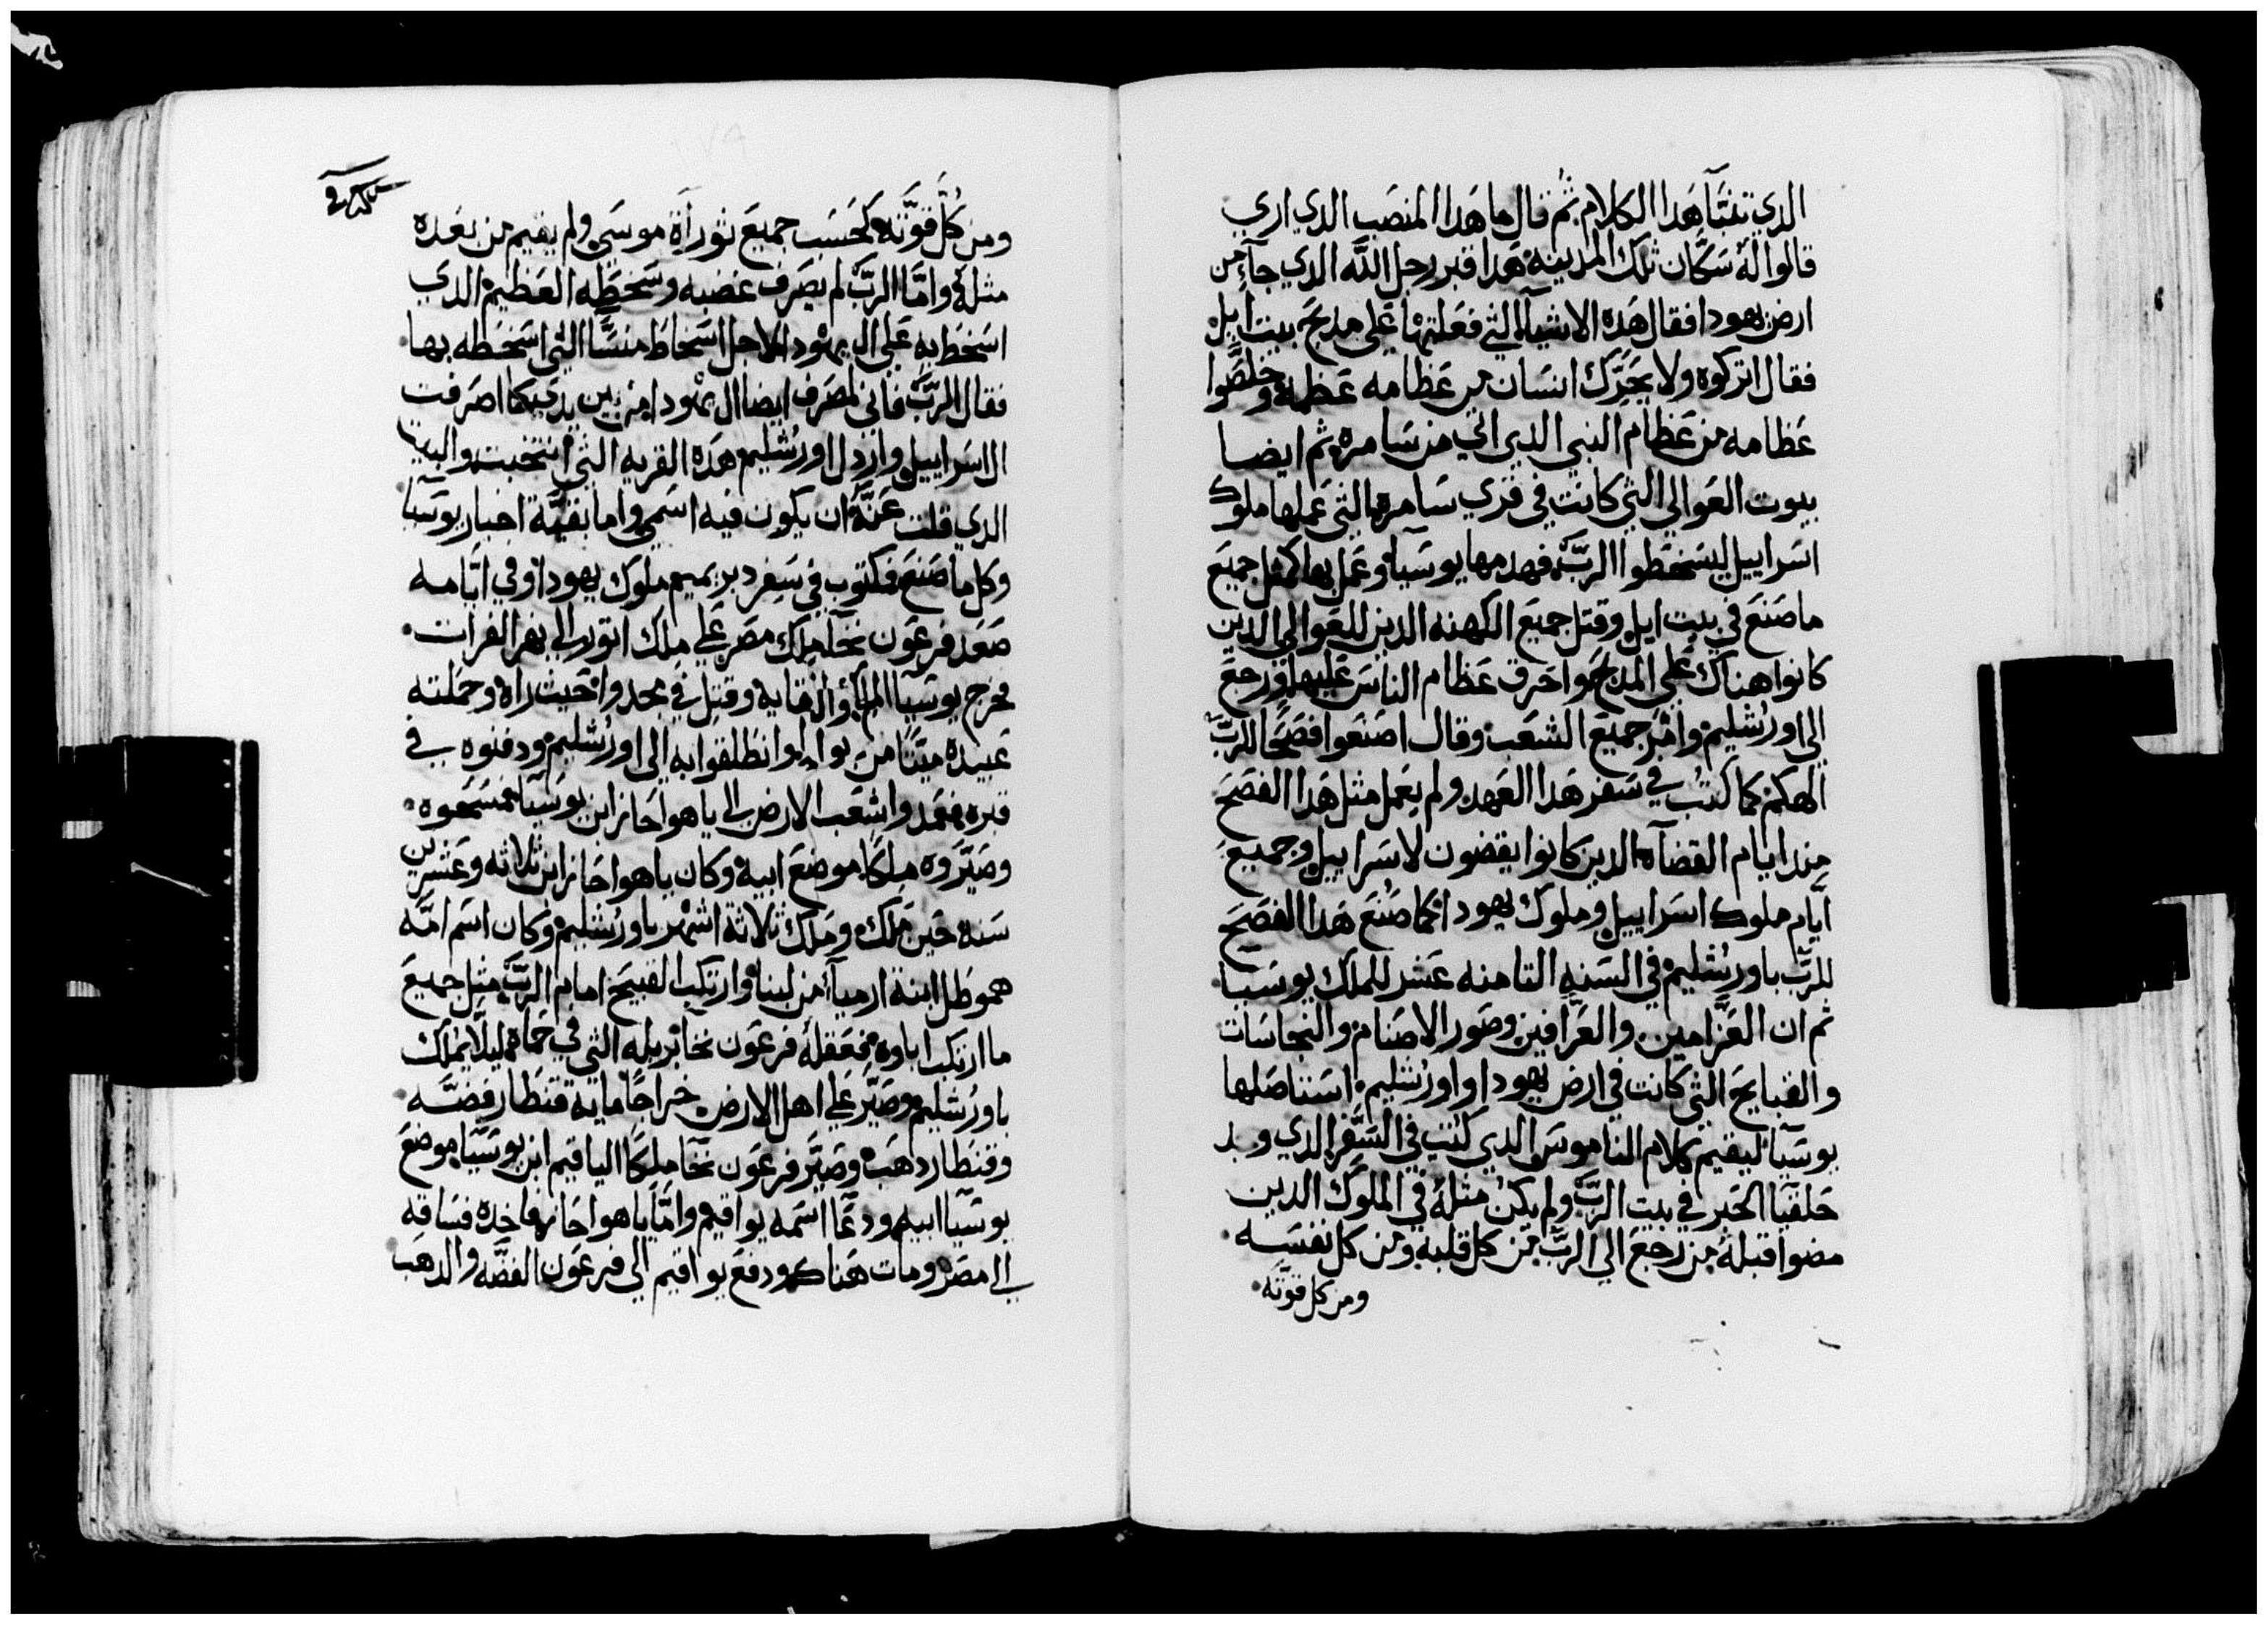 الدي تنبَّا هَدا الكلام ثم قال ما هَدا المنصَب الدي اري
قالوا لهُ سَكَّان تلك المدينه هَدا قبر رجل الله الدي جآء من
ارض يهودا فقال هَده الاشيآء التي فعَلتها علي مدبَح بيت ايل
فقال اتركوه ولا يحَرِّك انسَان من عَظامه عَظمهً وخلصَّوا
عَظامه من عَظام النبي الدي اتي من سَامره ثم ايضا
بيوت العَوالي التي كانت في قري سَامره التي عَملها ملوك
اسَراييل ليسَخطوا الربَّ فهدمها يوسَيآ وعَمل بها كمثل جميعَ
ما صَنعَ في بيت ايل وقتل جميعَ الكهنه الدين للعَوالي الدين
كانوا هناك عَلي المدبحَ واحَرق عَظام الناسَ عَليها ورجعَ
الي اورُشليم وامَر جميعَ الشعَب وقال اصَنعَوا فصَحًا للربَّ
الهكم كما كُتب في سَفر هَدا العَهد ولم يعَمل مثل هَدا الفصَحَ
مِندا ايام القضآه الدين كانوا يقضون لاسَراييل وجميعَ
ايَّام ملوك اسَراييل وملوك يهودا كما صُنعَ هَدا الفصَحَ
للربَّ باورُشليم في السَنه التامنه عَشر للملك يوسَيا
ثم ان العَزَّامين والعَرَّافين وصَور الاصَنام والنجاسَات
والقبايحَ التي كانت في ارض يهودا واورُشليم استاصَلها
يوسَيآ ليقيم كلام الناموسَ الدي كُتب في السَّفر الدي وجد
حَلقيَا الحَبر في بيت الربَّ ولم يكن مثلهُ في الملوك الدين
مضوا قبلهُ من رجعَ الي الربَّ من كل قلبه ومن كل نفسَه
ومن كل قوَّته
ومن كُل قوَّته كحَسَب جميعَ ثوراة موسَي ولم يقيم من بعَده
مثلهُ وامَّا الربَّ لم يصَرف غضبه وسَخطَه العَظيم الدي
اسَخطَ به عَلي ال يهودا لاجل اسَخاط منسَّا التي اسَخطه بها
فقال الربَّ فاني لمصَرف ايضا ال يهودا من بين يدي كما اصَرفت
ال اسَراييل وارذل اورُشليم هَده القريه التي انتخبت والبيت
الدي قلت عَنهُ ان يكون فيه اسَمي واما بقيَّة اخبار يوسَيا
وكل ما صَنعَ مكتوب في سَفر دبريميم ملوك يهودا وفي ايَّامه
صَعَد فرعَون نحَآ ملك مصَر عَلي ملك اتور الي نهر الفرات
فخرج يوسَيآ الملك للقايه وقتل في مجدوا حَيث راه وحَملته
عَبيده ميتًا من وانطلقوا به الي اورُشليم ودفنوه في
قبره فعَمد واشعَب الارض الي ياهواحَاز ابن يوسَيا فمسَحَوه
وصَيَّروه ملكًا موضعَ ابيه وكان ياهواحَاز ابن ثلاثه وعَشرين
سَنه حَين مَلك ومَلك ثلاثة اشهر باورُشليم وكان اسَم امّه
هموطل ابنة ارميآ من لبنا وارتكب القبيحَ امام الربَّ مثل جميعَ
ما ارتكب اباوه فعَقلهُ فرعَون نحَا بربله التي في حَماه ليلّا يملك
باورُشليم وصَيَّر عَلي اهل الارض خراجًا مايه قنطار فضّه
وقنطار دهَب وصَيَّر فرعَون نحَا ملكًا الياقيم ابن يوسَيَّا موضعَ
يوسَيآ ابيه ودعَا اسَمه يواقيم وامَّا ياهواحَاز فاخده فسَاقه
الي مصَر ومات هَناك ودفعَ يواقيم الي فرعَون الفضَّه والدهَب